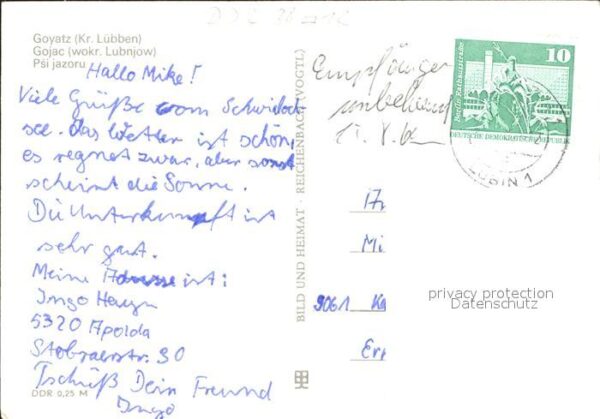 Goyatz (Kr. Lübben)
Gojac (wokr. Lubnjow)
Pśi jazoru
Hallo Mike!
Viele Grüße vom Schwieloch-
see. Das Wetter ist schön,
es regnet zwar, aber sonst
scheint die Sonne.
Die Unterkunft ist
sehr gut.
Meine Adresse ist:
Ingo
5320 Apolda
30
Tschüß Dein Freund
Ingo
DDR 0,25 M
BILD UND HEIMAT · REICHENBACH (VOGTL)
Empfänger
unbekannt
10
Berlin, Rathausstraße
DEUTSCHE DEMOKRATISCHE REPUBLIK
LÜBBEN 1
Mi
9061
privacy protection
Datenschutz